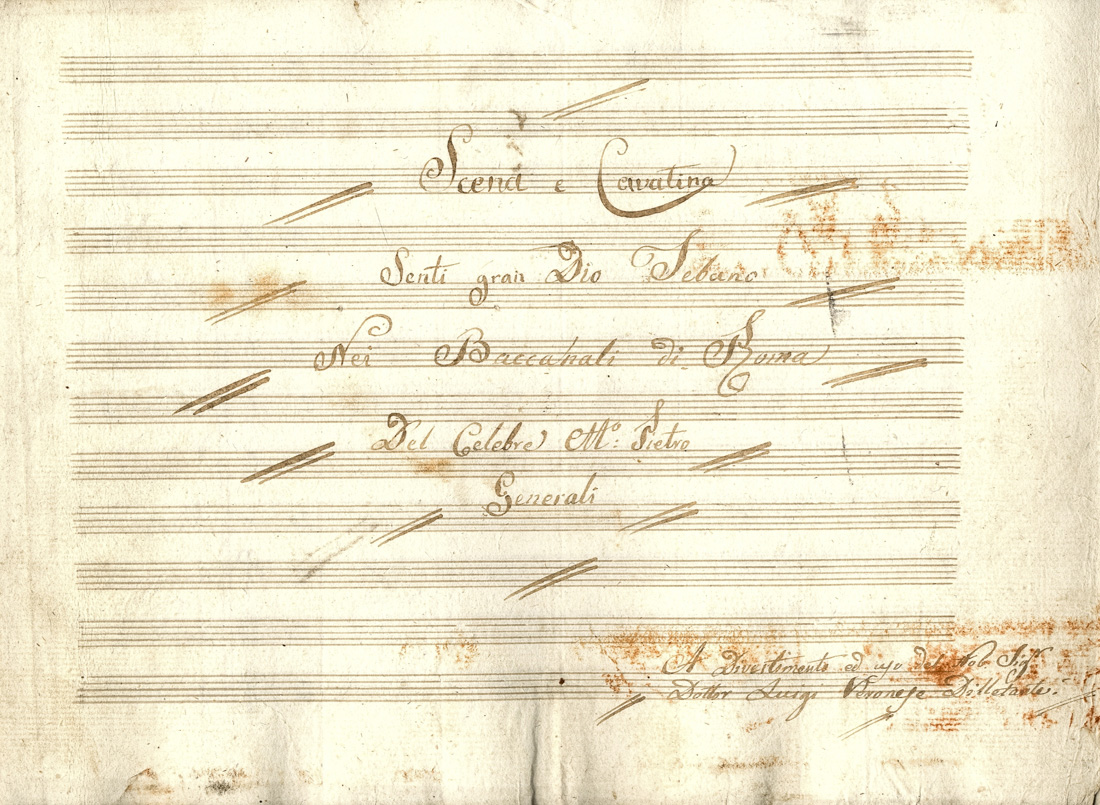 Scena e Cavatina
Senti gran Dio Tebano
Nei Baccanali di Roma
Del Celebre M.º: Pietro
Generali
A Divertimento ed uso del Nob. Sigr
Dottor Luigi Veronese